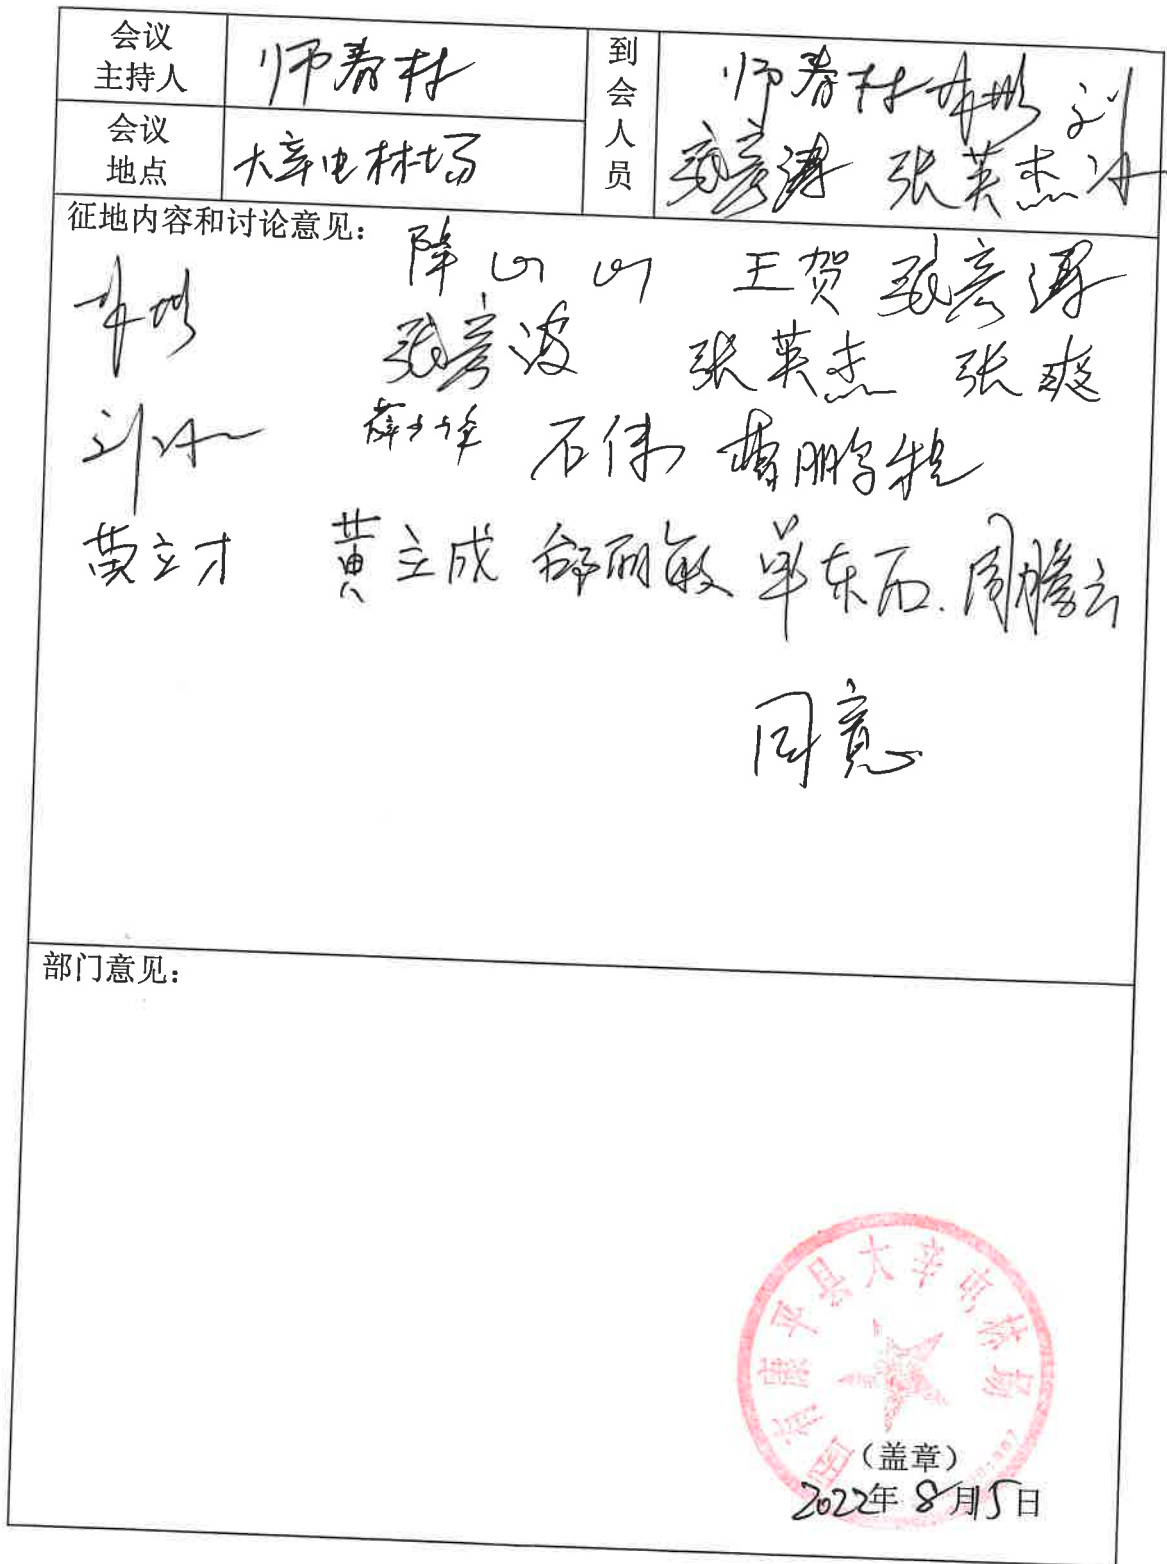 会议
主持人
师春林
到会人员
师春林 刘冰
张彦涛 张英杰
会议
地点
大辛屯林场
征地内容和讨论意见：
陈山山 王贺 张彦涛
张彦波 张英杰 张爽
刘冰 石伟 曹鹏
黄立才 黄立成 邰丽敏 单东石 周胜云
同意
部门意见：
国有康平县大辛屯林场
（盖章）
2022年8月15日